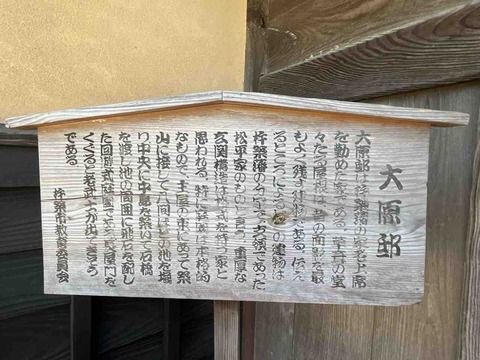 大原邸
大原邸は杵築藩の家老上席
を勤めた家である 草茸の堂
々たる屋根は 昔の面影を最
もよく残す建物である 伝え
るところによるとこの建物は
杵築藩の分家で支領であった
松平家のものと言う 重厚な
玄関構造は格式を持つ家と
思われる 特に庭園は本格的
なもので 主屋の東にあって築
山に接して八間に六間の池を堀
り中央に中島を築いて石橋
を渡し池の周囲に飛石を配し
た回遊式庭園である 長屋門を
くぐると格式が出てきそう
である
杵築市教育委員会